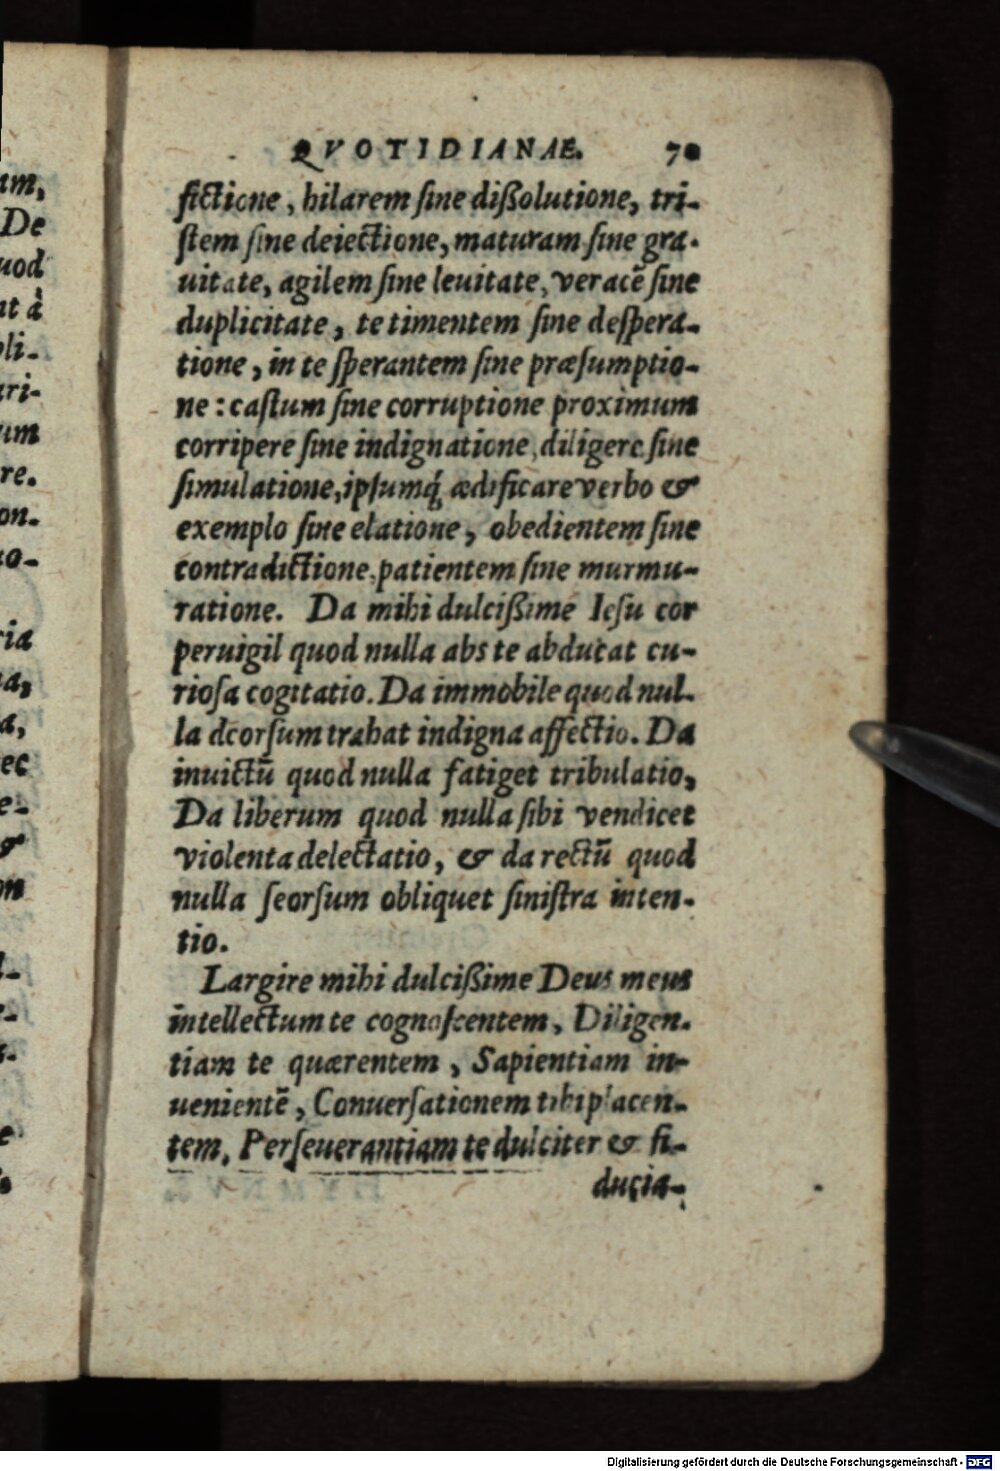 QVOTIDIANAE. 70
fictione, hilarem sine dißolutione, tri-
stem sine deiectione, maturam sine gra-
uitate, agilem sine leuitate, veracē sine
duplicitate, te timentem sine despera-
tione, in te sperantem sine præsumptio-
ne: castum sine corruptione proximum
corripere sine indignatione, diligere sine
simulatione, ipsumq́; ædificare verbo &
exemplo sine elatione, obedientem sine
contradictione, patientem sine murmu-
ratione. Da mihi dulcißime Iesu cor
peruigil quod nulla abs te abducat cu-
riosa cogitatio. Da immobile quod nul-
la deorsum trahat indigna affectio. Da
inuictū quod nulla fatiget tribulatio,
Da liberum quod nulla sibi vendicet
violenta delectatio, & da rectū quod
nulla seorsum obliquet sinistra inten-
tio.
Largire mihi dulcißime Deus meus
intellectum te cognoscentem, Diligen-
tiam te quærentem, Sapientiam in-
uenientē, Conuersationem tibi placen-
tem, Perseuerantiam te dulciter & fi-
ducia-
um,
De
uod
ut à
li-
ari-
um
re.
on-
ria
a,
ec
e-
&
on
Digitalisierung gefördert durch die Deutsche Forschungsgemeinschaft - DFG